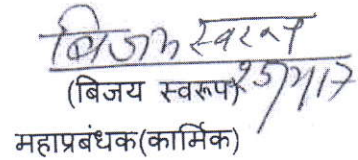 बिजय स्वरूप
(बिजय स्वरूप)
महाप्रबंधक(कार्मिक)